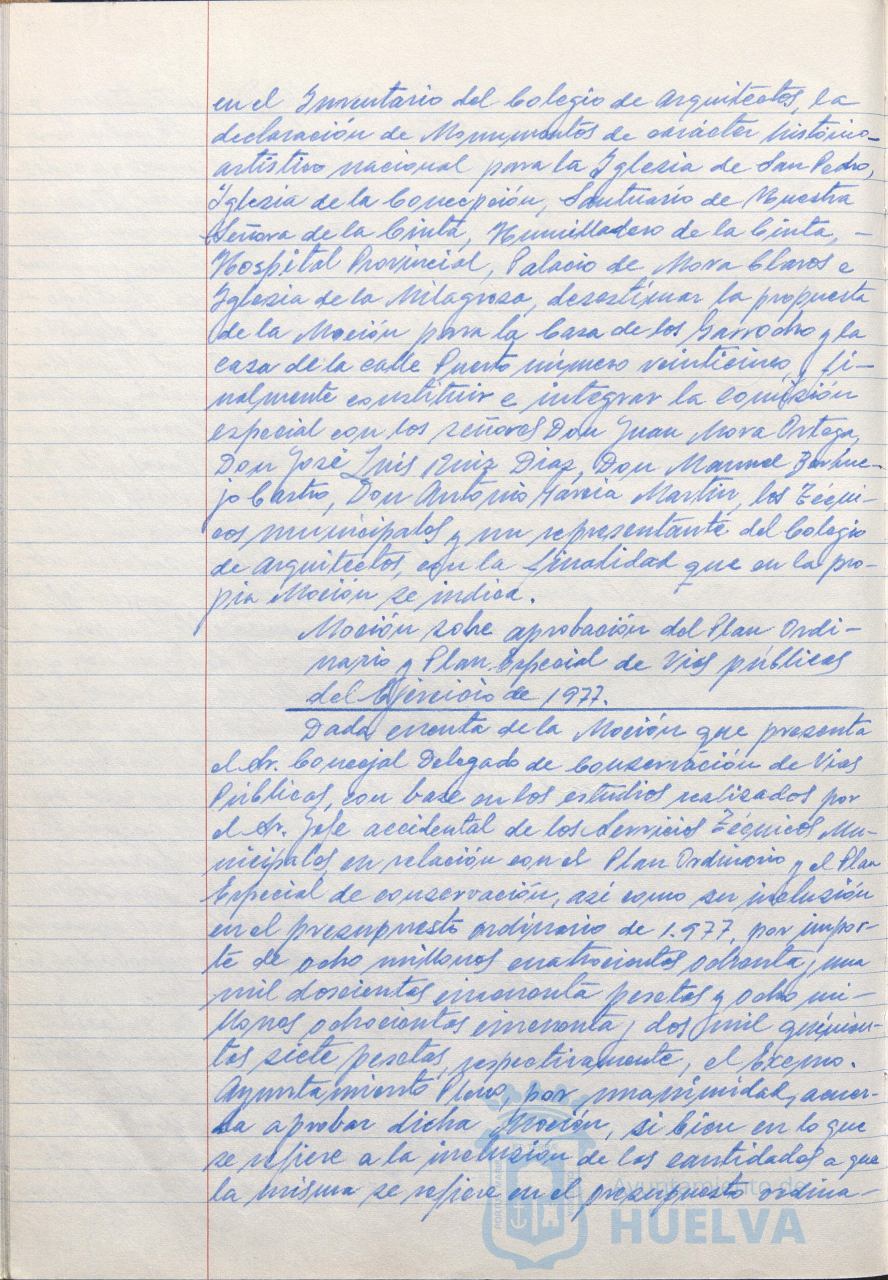 en el Inventario del Colegio de Arquitectos, la
declaración de Monumentos de carácter histórico-
artístico nacional para la Iglesia de San Pedro,
Iglesia de la Concepción, Santuario de Nuestra
Señora de la Cinta, Humilladero de la Cinta, -
Hospital Provincial, Palacio de Mora Claros e
Iglesia de la Milagrosa, desestimar la propuesta
de la Moción para la Casa de los Garrocho y la
casa de la calle Puerto número veinticinco, y fi-
nalmente constituir e integrar la comisión
especial con los señores Don Juan Mora Ortega,
Don José Luís Ruiz Díaz, Don Manuel Borhue-
jo Castro, Don Antonio García Martín, los Técni-
cos municipales y un representante del Colegio
de Arquitectos, con la finalidad que en la pro-
pia Moción se indica.
Moción sobre aprobación del Plan Ordi-
nario y Plan Especial de Vias públicas
del Ejercicio de 1977.
Dada cuenta de la Moción que presenta
el Sr. Concejal Delegado de Conservación de Vias
Públicas, con base en los estudios realizados por
el Sr. Jefe accidental de los Servicios Técnicos Mu-
nicipales, en relación con el Plan Ordinario y el Plan
Especial de conservación, así como su inclusión
en el presupuesto ordinario de 1.977, por impor-
te de ocho millones cuatrocientas ochenta y una
mil doscientas cincuenta pesetas y ocho mi-
llones ochocientas cincuenta y dos mil quinien-
tas siete pesetas, respectivamente, el Excmo.
Ayuntamiento Pleno, por unanimidad, acuer-
da aprobar dicha Moción, si bien en lo que
se refiere a la inclusión de las cantidades a que
la misma se refiere en el presupuesto ordina-
Ayuntamiento de
HUELVA